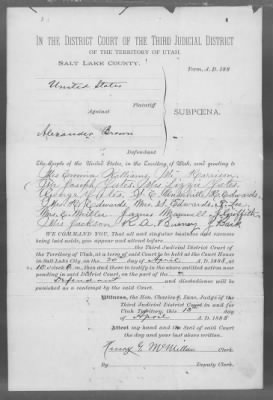 IN THE DISTRICT COURT OF THE THIRD JUDICIAL DISTRICT
OF THE TERRITORY OF UTAH.
SALT LAKE COUNTY.
Term, A. D. 188
United States
Plaintiff
Against
SUBPŒNA.
Alexander Brown
Defendant
The People of the United States, in the Territory of Utah, send greeting to
Mrs Emma Williams, Harrison
Joseph Yates, Mrs Lizzie Yates
Yates, Edwards
Mrs Edwards, Mrs Edwards, Lee
Mrs Miller James Maxwell, J Griffith
Mrs Jackson R. A. Burney, J Park
WE COMMAND YOU, That all and singular business and excuses
being laid aside, you appear and attend before
the Third Judicial District Court of the
Territory of Utah, at a term of said Court to be held at the Court House
in Salt Lake City, on the 20 day of April A. D. 1885, at
10 o'clock, then and there to testify in the above entitled action now
pending in said District Court, on the part of the
Defendant and disobedience will be
punished as a contempt by the said Court.
Witness, the Hon. Charles S. Zane, Judge of the
Third Judicial District Court in and for
Utah Territory, this day
of April A. D. 188
Attest my hand and the Seal of said Court
the day and year last above written.
Henry G. McMillan Clerk.
By Deputy Clerk.